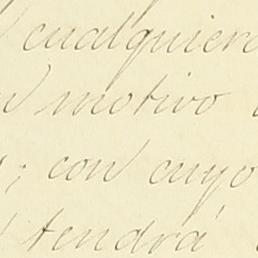 cualquiera
motivo
; con cuyo
tendrá